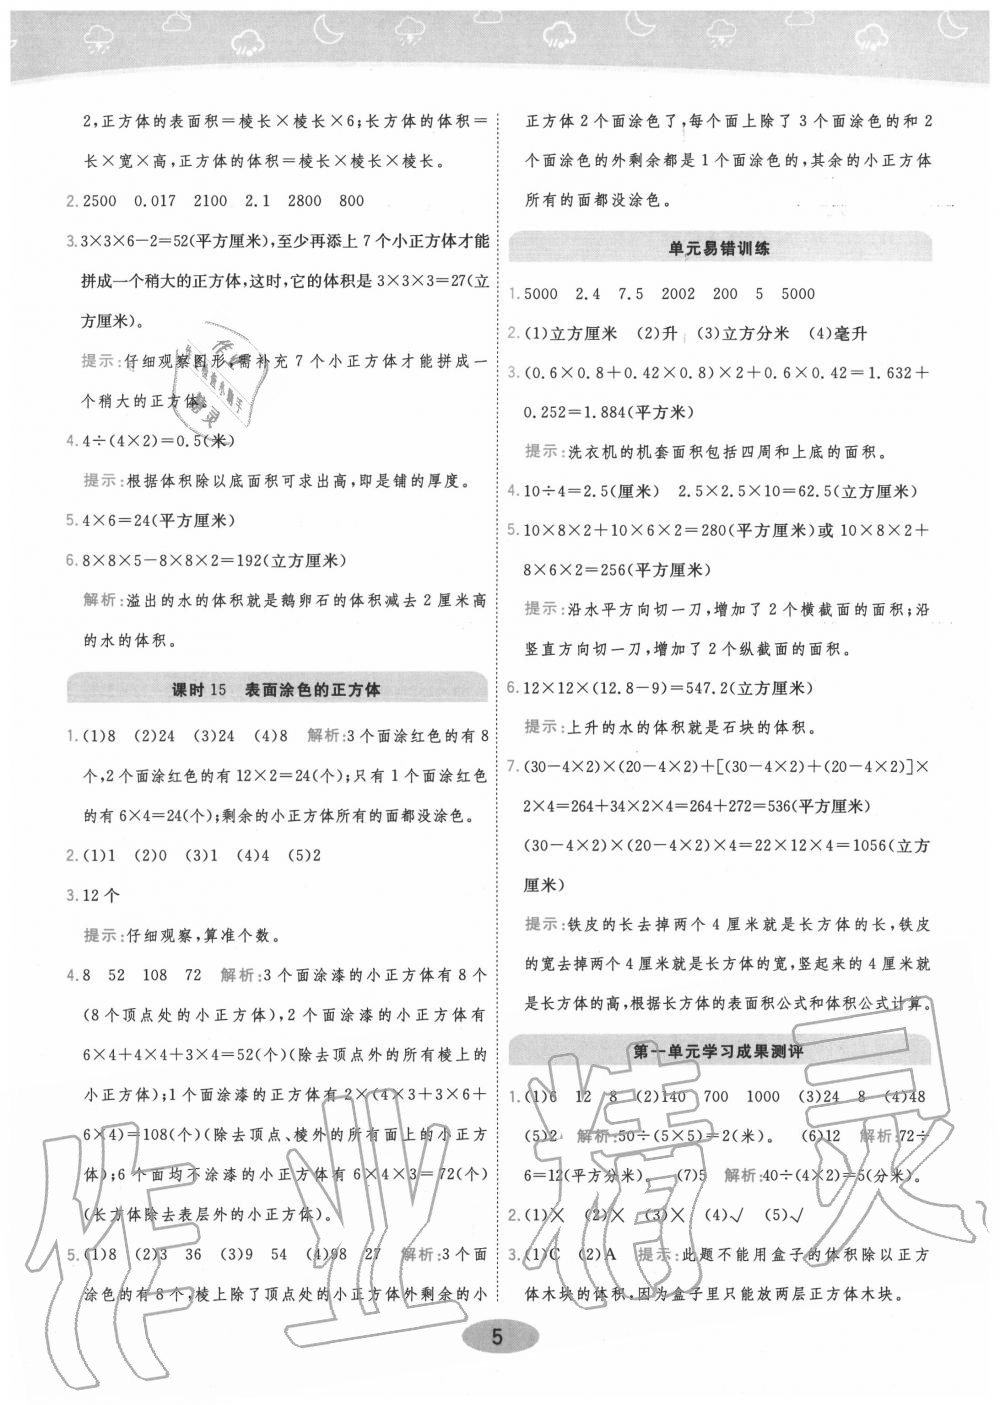 2,正方体的表面积=棱长×棱长×6;长方体的体积=
长×宽×高,正方体的体积=棱长×棱长×棱长。
2. 2500 0.017 2100 2.1 2800 800
3. 3×3×6-2=52(平方厘米),至少再添上7个小正方体才能
拼成一个稍大的正方体,这时,它的体积是3×3×3=27(立
方厘米)。
提示:仔细观察图形,需补充7个小正方体才能拼成一
个稍大的正方体。
4. 4÷(4×2)=0.5(米)
提示:根据体积除以底面积可求出高,即是铺的厚度。
5. 4×6=24(平方厘米)
6. 8×8×5-8×8×2=192(立方厘米)
解析:溢出的水的体积就是鹅卵石的体积减去2厘米高
的水的体积。
课时15 表面涂色的正方体
1. (1)8 (2)24 (3)24 (4)8 解析:3个面涂红色的有8
个,2个面涂红色的有12×2=24(个);只有1个面涂红色
的有6×4=24(个);剩余的小正方体所有的面都没涂色。
2. (1)1 (2)0 (3)1 (4)4 (5)2
3. 12个
提示:仔细观察,算准个数。
4. 8 52 108 72 解析:3个面涂漆的小正方体有8个
(8个顶点处的小正方体),2个面涂漆的小正方体有
6×4+4×4+3×4=52(个)(除去顶点外的所有棱上的
小正方体);1个面涂漆的小正方体有2×(4×3+3×6+
6×4)=108(个)(除去顶点、棱外的所有面上的小正方
体);6个面均不涂漆的小正方体有6×4×3=72(个)
(长方体除去表层外的小正方体)。
5. (1)8 (2)3 36 (3)9 54 (4)98 27 解析:3个面
涂色的有8个,棱上除了顶点处的小正方体外剩余的小
正方体2个面涂色了,每个面上除了3个面涂色的和2
个面涂色的外剩余都是1个面涂色的,其余的小正方体
所有的面都没涂色。
单元易错训练
1. 5000 2.4 7.5 2002 200 5 5000
2. (1)立方厘米 (2)升 (3)立方分米 (4)毫升
3. (0.6×0.8+0.42×0.8)×2+0.6×0.42=1.632+
0.252=1.884(平方米)
提示:洗衣机的机套面积包括四周和上底的面积。
4. 10÷4=2.5(厘米) 2.5×2.5×10=62.5(立方厘米)
5. 10×8×2+10×6×2=280(平方厘米)或10×8×2+
8×6×2=256(平方厘米)
提示:沿水平方向切一刀,增加了2个横截面的面积;沿
竖直方向切一刀,增加了2个纵截面的面积。
6. 12×12×(12.8-9)=547.2(立方厘米)
提示:上升的水的体积就是石块的体积。
7. (30-4×2)×(20-4×2)+[(30-4×2)+(20-4×2)]×
2×4=264+34×2×4=264+272=536(平方厘米)
(30-4×2)×(20-4×2)×4=22×12×4=1056(立方
厘米)
提示:铁皮的长去掉两个4厘米就是长方体的长,铁皮
的宽去掉两个4厘米就是长方体的宽,竖起来的4厘米就
是长方体的高,根据长方体的表面积公式和体积公式计算。
第一单元学习成果测评
1. (1)6 12 8 (2)140 700 1000 (3)24 8 (4)48
(5)2 解析:50÷(5×5)=2(米)。 (6)12 解析:72÷
6=12(平方分米)。 (7)5 解析:40÷(4×2)=5(分米)。
2. (1)× (2)× (3)× (4)√ (5)√
3. (1)C (2)A 提示:此题不能用盒子的体积除以正方
体木块的体积,因为盒子里只能放两层正方体木块。
5
作业精灵